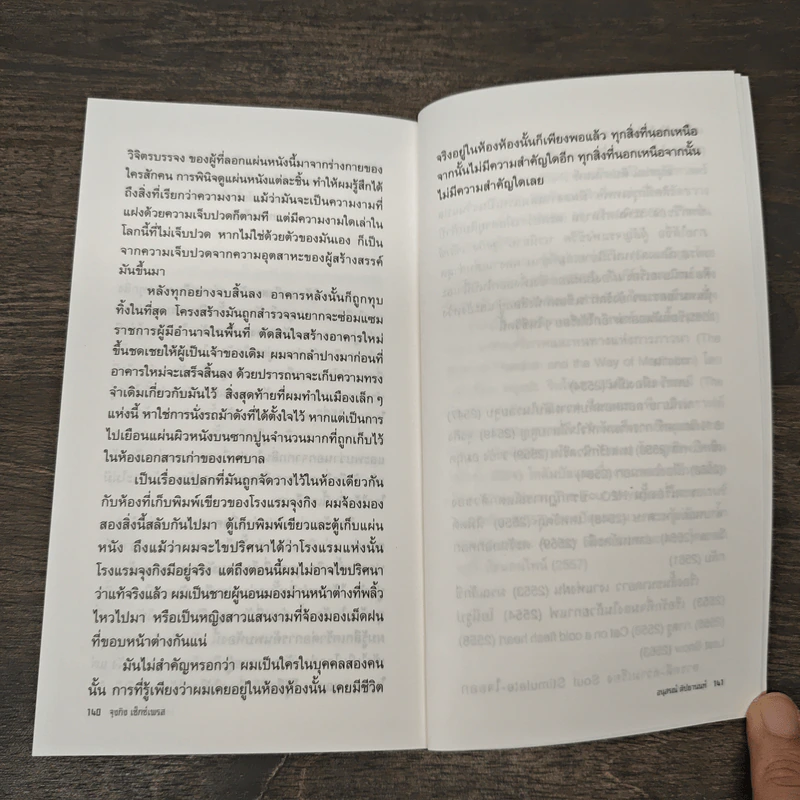 วิจิตรบรรจง ของผู้ที่ลอกแผ่นหนังนี้มาจากร่างกายของ
ใครสักคน การพินิจดูแผ่นหนังแต่ละชิ้น ทำให้ผมรู้สึกได้
ถึงสิ่งที่เรียกว่าความงาม แม้ว่ามันจะเป็นความงามที่
แฝงด้วยความเจ็บปวดก็ตามที แต่มีความงามใดเล่าใน
โลกนี้ที่ไม่เจ็บปวด หากไม่ใช่ด้วยตัวของมันเอง ก็เป็น
จากความเจ็บปวดจากความอุตสาหะของผู้สร้างสรรค์
มันขึ้นมา
หลังทุกอย่างจบสิ้นลง อาคารหลังนั้นก็ถูกทุบ
ทิ้งในที่สุด โครงสร้างมันถูกสำรวจจนยากจะซ่อมแซม
ราชการผู้มีอำนาจในพื้นที่ ตัดสินใจสร้างอาคารใหม่
ขึ้นชดเชยให้ผู้เป็นเจ้าของเดิม ผมจากลำปางมาก่อนที่
อาคารใหม่จะเสร็จสิ้นลง ด้วยปรารถนาจะเก็บความทรง
จำเดิมเกี่ยวกับมันไว้ สิ่งสุดท้ายที่ผมทำในเมืองเล็ก ๆ
แห่งนี้ หาใช่การนั่งรถม้าดังที่ได้ตั้งใจไว้ หากแต่เป็นการ
ไปเยือนแผ่นผิวหนังบนซากปูนจำนวนมากที่ถูกเก็บไว้
ในห้องเอกสารเก่าของเทศบาล
เป็นเรื่องแปลกที่มันถูกจัดวางไว้ในห้องเดียวกัน
กับห้องที่เก็บพิมพ์เขียวของโรงแรมจุงกิง ผมจ้องมอง
สองสิ่งนี้สลับกันไปมา ตู้เก็บพิมพ์เขียวและตู้เก็บแผ่น
หนัง ถึงแม้ว่าผมจะไขปริศนาได้ว่าโรงแรมแห่งนั้น
โรงแรมจุงกิงมีอยู่จริง แต่ถึงตอนนี้ผมไม่อาจไขปริศนา
ว่าแท้จริงแล้ว ผมเป็นชายผู้นอนมองม่านหน้าต่างที่พลิ้ว
ไหวไปมา หรือเป็นหญิงสาวแสนงามที่จ้องมองเม็ดฝน
ที่ขอบหน้าต่างกันแน่
มันไม่สำคัญหรอกว่า ผมเป็นใครในบุคคลสองคน
นั้น การที่รู้เพียงว่าผมเคยอยู่ในห้องห้องนั้น เคยมีชีวิต
140 จุงกิง เอ็กซ์เพรส
จริงอยู่ในห้องห้องนั้นก็เพียงพอแล้ว ทุกสิ่งที่นอกเหนือ
จากนั้นไม่มีความสำคัญใดอีก ทุกสิ่งที่นอกเหนือจากนั้น
ไม่มีความสำคัญใดเลย
อนุสรณ์ ติปยานนท์ 141